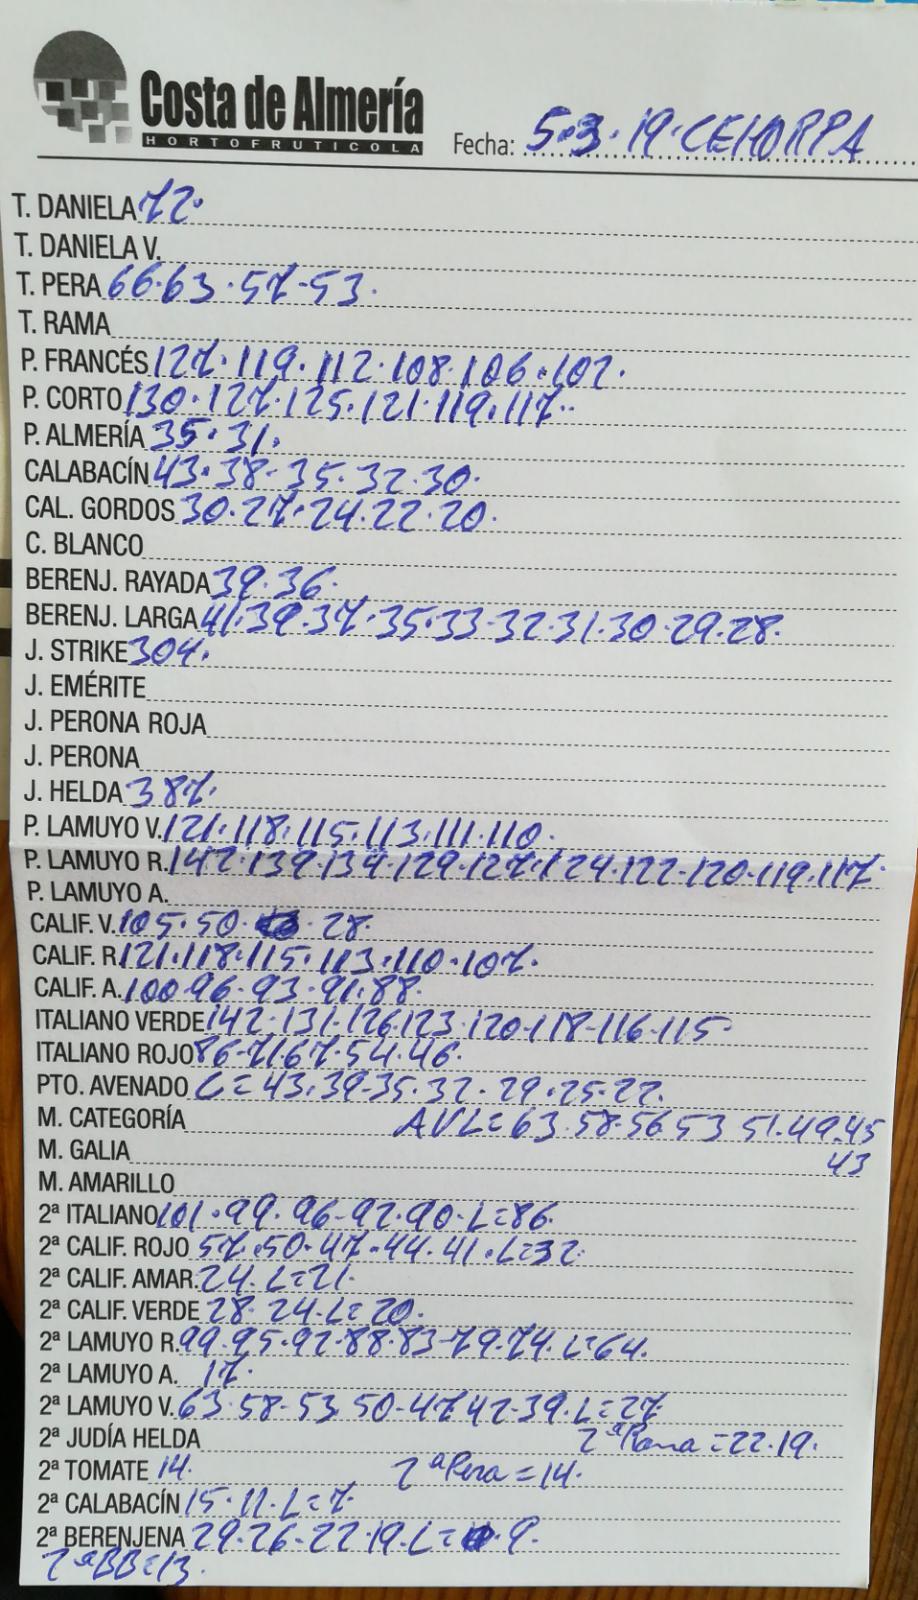 Costa de Almería
HORTOFRUTICOLA
Fecha: 5·3·19·CEHORPA
T. DANIELA 72·
T. DANIELA V.
T. PERA 66·63·57-53·
T. RAMA
P. FRANCÉS 127·119·112·108·106·102·
P. CORTO 130·127·125·121·119·117··
P. ALMERÍA 35·31·
CALABACÍN 43·38-35·32·30·
CAL. GORDOS 30·27·24·22·20·
C. BLANCO
BERENJ. RAYADA 39·36·
BERENJ. LARGA 41·39·37·35·33-32·31·30·29·28·
J. STRIKE 304·
J. EMÉRITE
J. PERONA ROJA
J. PERONA
J. HELDA 387·
P. LAMUYO V. 121·118·115·113·111·110·
P. LAMUYO R. 142·139·134·129·127·124·122-120·119·117·
P. LAMUYO A.
CALIF. V. 105·50· · 28·
CALIF. R. 121·118·115·113·110·107·
CALIF. A. 100·96·93·91·88·
ITALIANO VERDE 142·131·126·123·120·118-116-115-
ITALIANO ROJO 86-71 67·54·46·
PTO. AVENADO C=43·39-35·32·29·25·22·
M. CATEGORÍA AVL=63·58·56 53 51·49·45
M. GALIA 43
M. AMARILLO
2ª ITALIANO 101·99·96-92·90·L=86·
2ª CALIF. ROJO 57·50·47·44·41·L=32·
2ª CALIF. AMAR. 24·L=21·
2ª CALIF. VERDE 28·24·L=20·
2ª LAMUYO R. 99·95·92·88·83-79·74·L=64·
2ª LAMUYO A. 17·
2ª LAMUYO V. 63·58·53·50-47 42-39·L=27·
2ª JUDÍA HELDA 2ª Rama=22·19·
2ª TOMATE 14· 2ª Pera=14·
2ª CALABACÍN 15·11·L=7·
2ª BERENJENA 29·26-22·19·L= 9·
2ªBB=13·